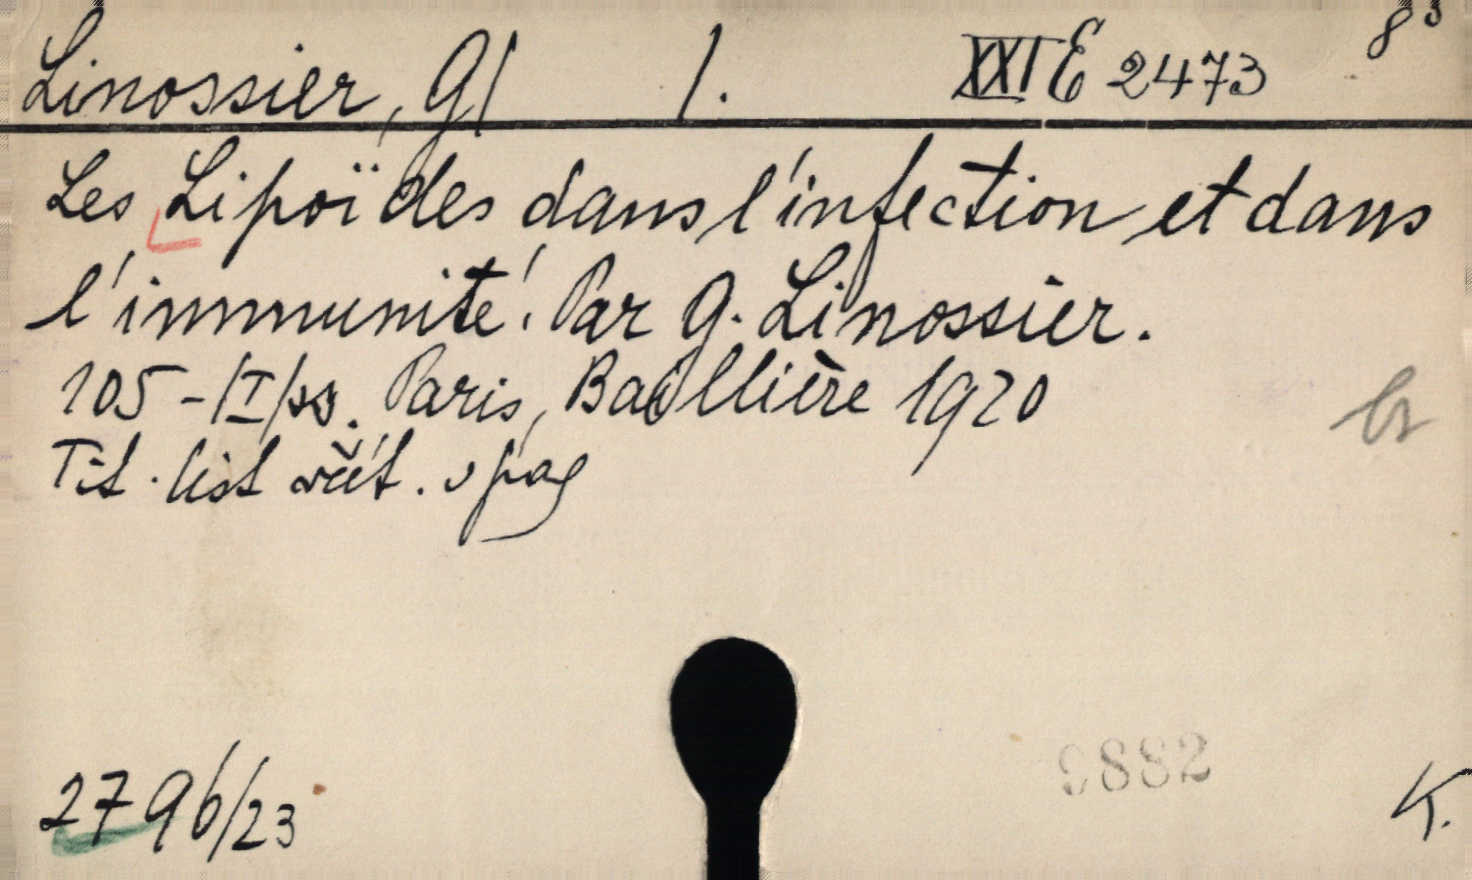 Linossier, G/ /. XXI E 2473 8°
Les Lipoïdes dans l'infection et dans
l'immunité. Par G. Linossier.
105-/I/ss. Paris, Baillière 1920
Tit. list včít. v pag
2796/23
9882
K.